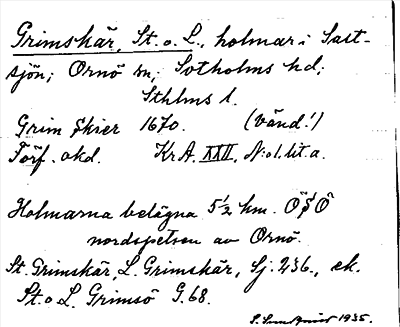 Grimskär, St. o. L., holmar i Salt-
sjön; Ornö sn, Sotholms hd,
Sthlms l.
Grim Skier 1670. (Vänd!)
Förf. okd. Kr A. XXII, N:o 1. lit. a.
Holmarna belägna 5½ km. OSO
nordspetsen av Ornö.
St. Grimskär, L. Grimskär, Sj. 236., ek.
St. o L. Grimsö G. 68.
1935.